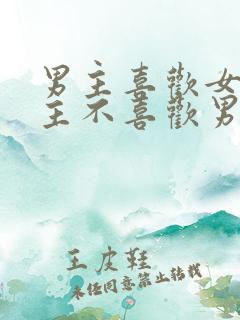 男主喜歡女
主不喜歡男
王皮鞋
未经同意禁止转载